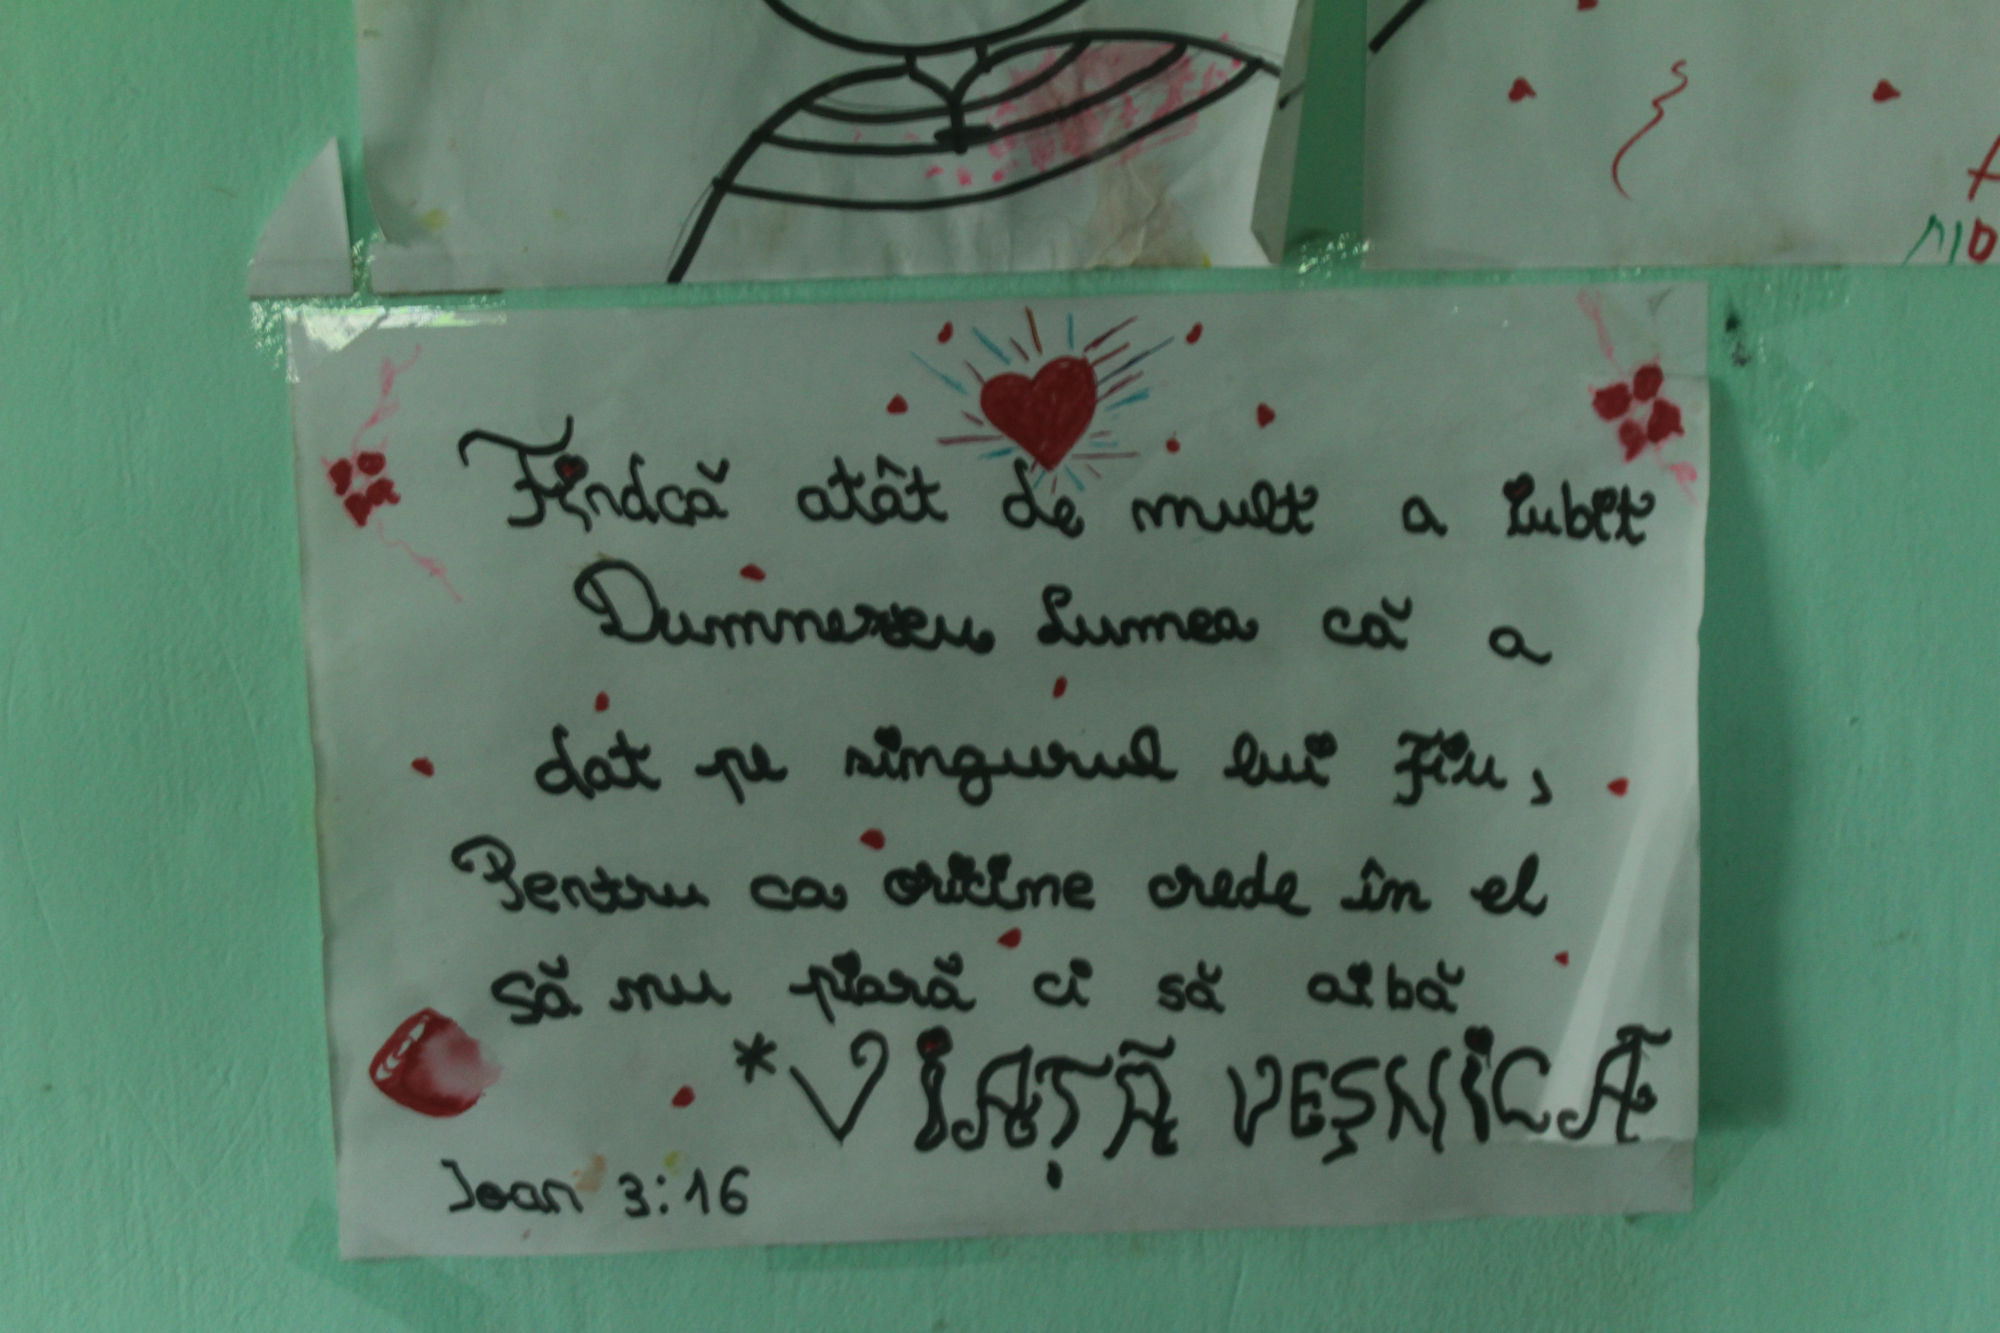 Findcă atât de mult a iubit
Dumnezeu Lumea că a
dat pe singurul lui Fiu,
Pentru ca oricine crede în el
să nu piară ci să aibă
*VIAȚĂ VEȘNICĂ
Ioan 3:16